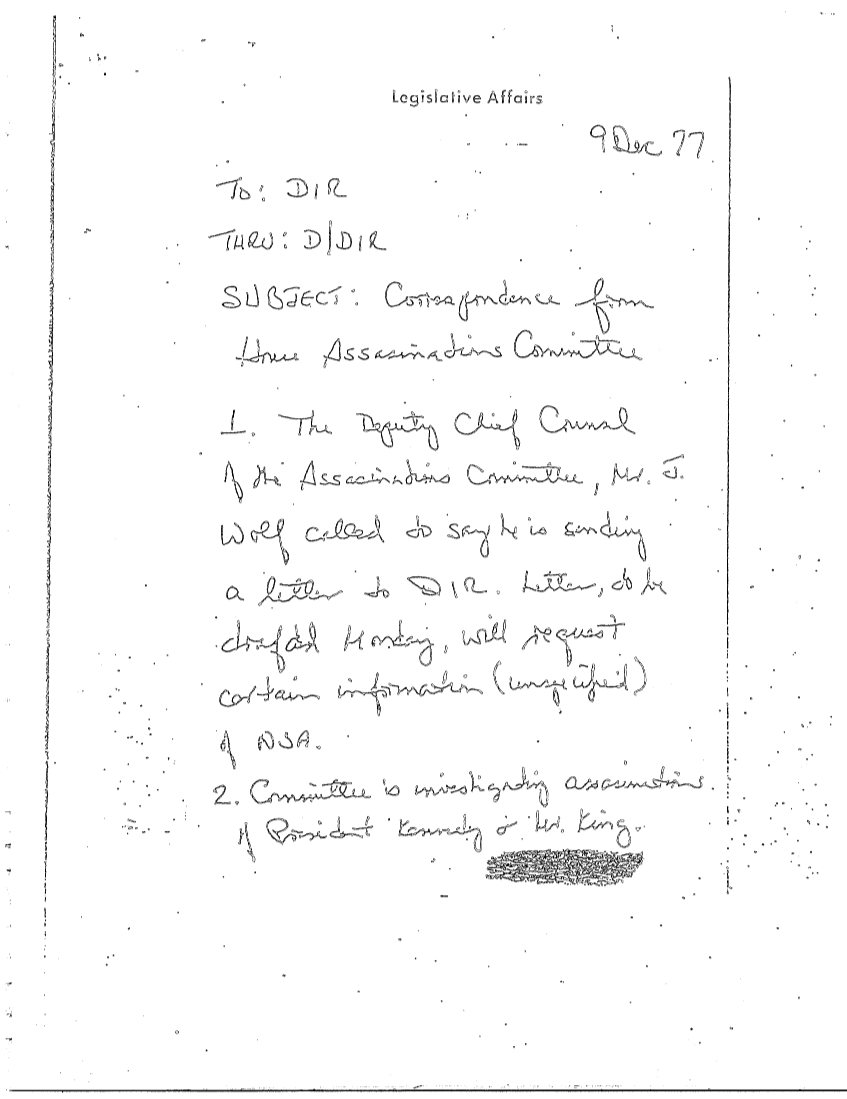 Legislative Affairs
9 Dec 77
TO: DIR
THRU: D/DIR
SUBJECT: Correspondence from
House Assasinations Committee
1. The Deputy Chief Counsel
of the Assasinations Committee, Mr. J.
Wolf called to say he is sending
a letter to DIR. Letter, to be
drafted Monday, will request
certain information (unspecified)
of NSA.
2. Committee is investigating assasinations
of President Kennedy & Mr. King.